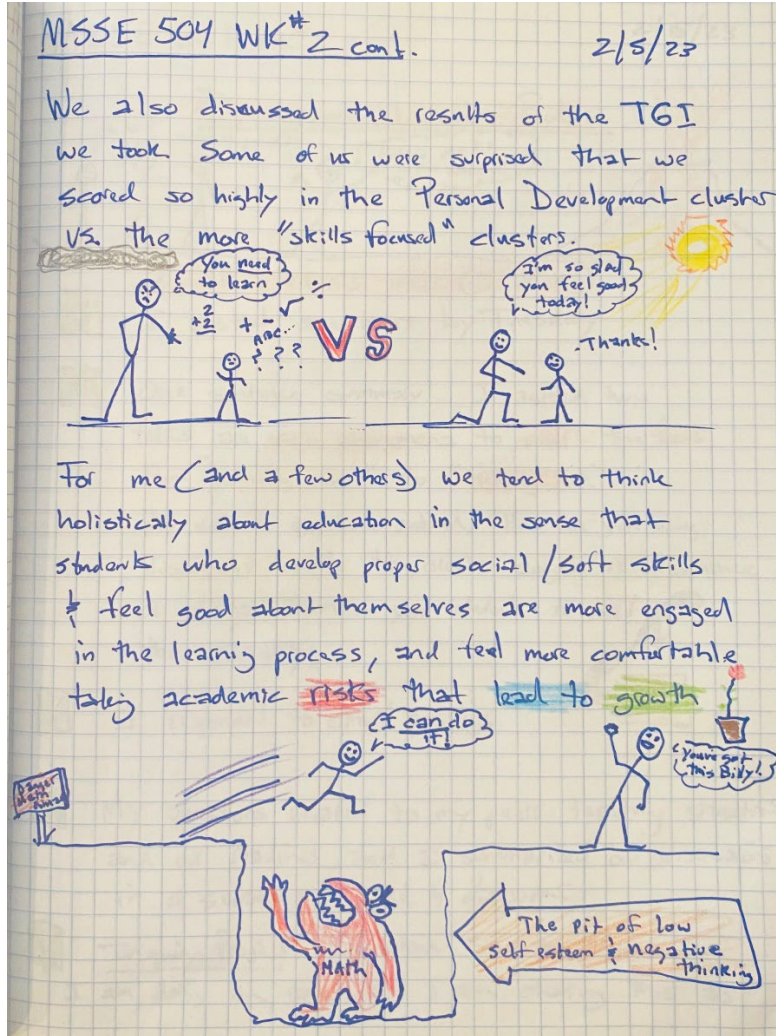 MSSE 504 WK #2 cont.
2/5/23
We also discussed the results of the TGI
we took. Some of us were surprised that we
scored so highly in the Personal Development cluster
vs. the more "skills focused" clusters.
You need
to learn
2
+2
+ - √ ÷
ABC...
? ? ?
VS
I'm so glad
you feel good
today!
Thanks!
For me (and a few others) we tend to think
holistically about education in the sense that
students who develop proper social/soft skills
& feel good about themselves are more engaged
in the learning process, and feel more comfortable
taking academic risks that lead to growth
I can do
it!
You've got
this Billy!
Danger
Math
Ahead
MATH
The pit of low
self esteem & negative
thinking